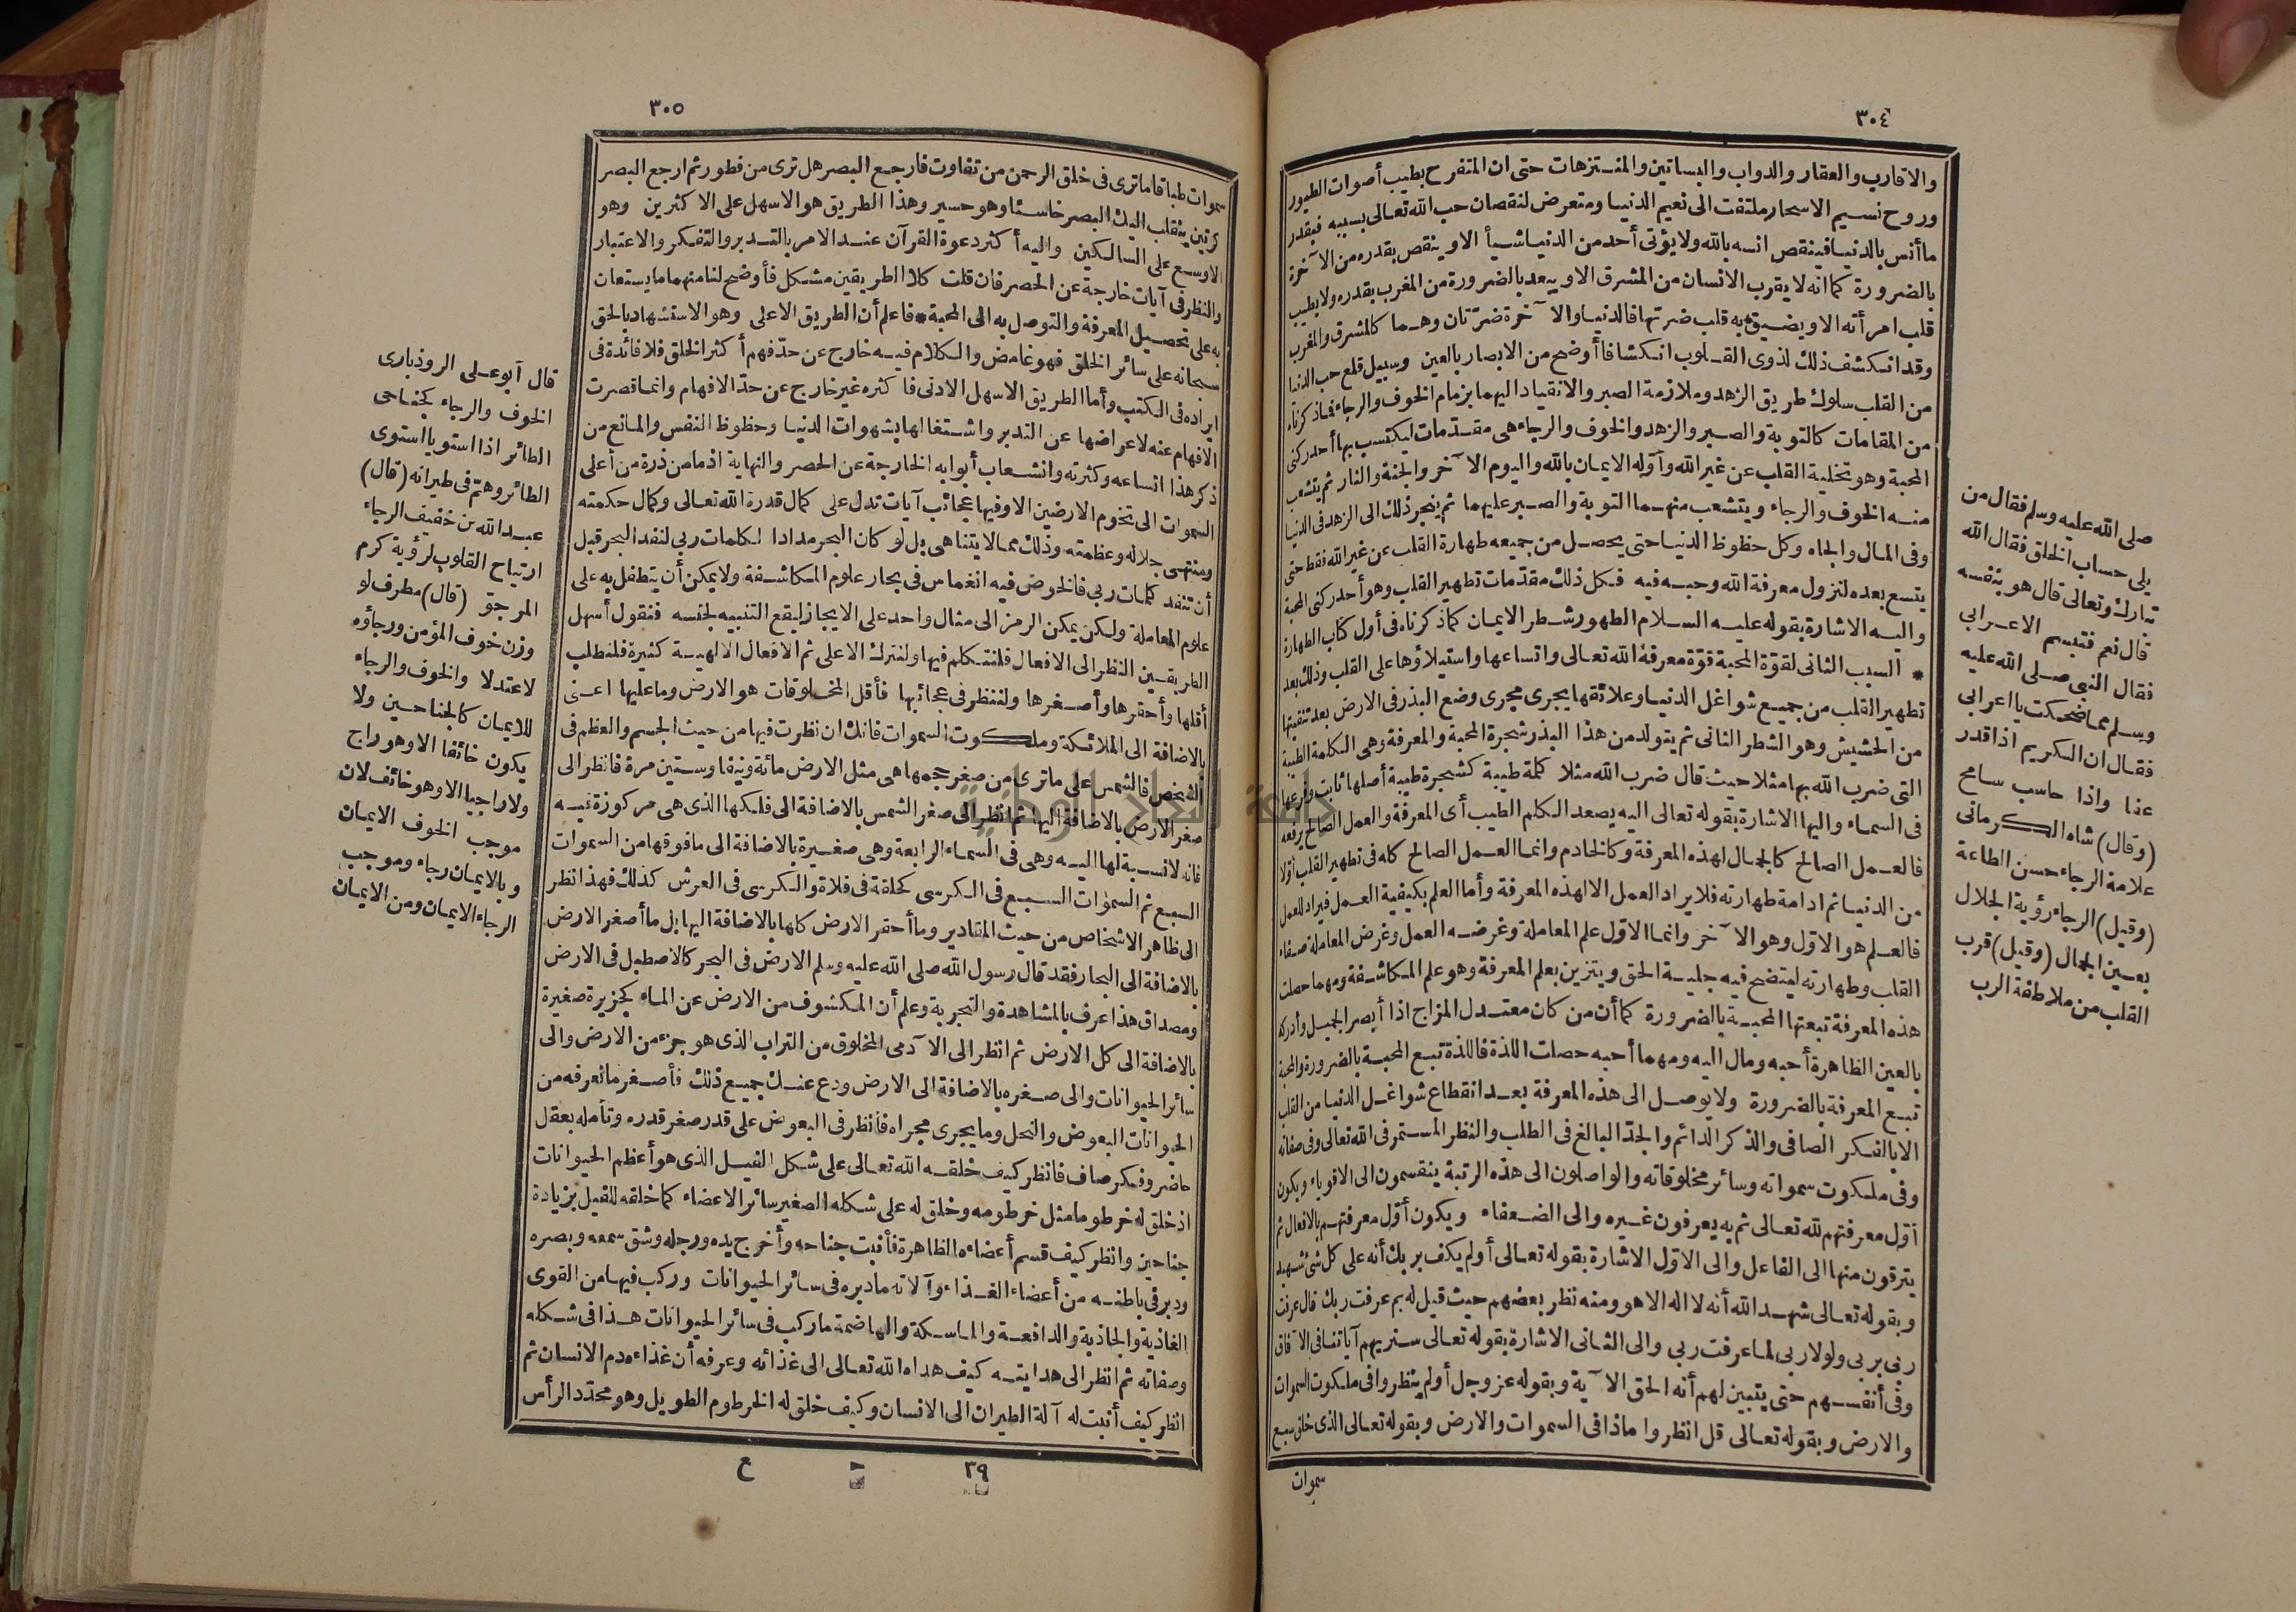 ٣٠٤
والاقارب والعقار والدواب والبساتين والمنتزهات حتى ان المتفرح بطيب أصوات الطيور
وروح نسيم الاسحار ملتفت الى نعيم الدنيا ومتعرض لنقصان حب الله تعالى بسببه فبقدر
ماأنس بالدنيا فينقص انسه بالله ولا يؤتى أحد من الدنيا شيأ الا وينقص بقدره من الآخرة
بالضرورة كما انه لا يقرب الانسان من المشرق الا ويبعد بالضرورة من المغرب بقدره ولا يطيب
قلب امرأته الا ويضيق به قلب ضرتها فالدنيا والآخرة ضرّتان وهما كالمشرق والمغرب
وقد انكشف ذلك لذوى القلوب انكشافا أوضح من الابصار بالعين وسبيل قلع حب الدنيا
من القلب سلوك طريق الزهد وملازمة الصبر والانقياد اليهما بزمام الخوف والرجاء فما ذكرناه
من المقامات كالتوبة والصبر والزهد والخوف والرجاء هى مقدّمات ليكتسب بها أحد ركنى
المحبة وهو تخلية القلب عن غير الله وأوّله الايمان بالله واليوم الآخر والجنة والنار ثم يتشعب
منه الخوف والرجاء ويتشعب منهما التوبة والصبر عليهما ثم ينجر ذلك الى الزهد فى الدنيا
وفى المال والجاه وكل حظوظ الدنيا حتى يحصل من جميعه طهارة القلب عن غير الله فقط حتى
يتسع بعده لنزول معرفة الله وحبه فيه فكل ذلك مقدّمات تطهير القلب وهو أحد ركنى المحبة
واليه الاشارة بقوله عليه السلام الطهور شطر الايمان كما ذكرناه فى أول كتاب الطهارة
* السبب الثانى لقوّة المحبة قوّة معرفة الله تعالى واتساعها واستيلاؤها على القلب وذلك بعد
تطهير القلب من جميع شواغل الدنيا وعلائقها يجرى مجرى وضع البذر فى الارض بعد تنقيتها
من الحشيش وهو الشطر الثانى ثم يتولد من هذا البذر شجرة المحبة والمعرفة وهى الكلمة الطيبة
التى ضرب الله بها مثلا حيث قال ضرب الله مثلا كلمة طيبة كشجرة طيبة أصلها ثابت وفرعها
فى السماء واليها الاشارة بقوله تعالى اليه يصعد الكلم الطيب أى المعرفة والعمل الصالح يرفعه
فالعمل الصالح كالجمال لهذه المعرفة وكالخادم وانما العمل الصالح كله فى تطهير القلب أوّلا
من الدنيا ثم ادامة طهارته فلا يراد العمل الا لهذه المعرفة وأما العلم بكيفية العمل فيراد للعمل
فالعلم هو الاوّل وهو الآخر وانما الاوّل علم المعاملة وغرضه العمل وغرض المعاملة صفاء
القلب وطهارته ليتضح فيه جلية الحق ويتزين بعلم المعرفة وهو علم المكاشفة ومهما حصلت
هذه المعرفة تبعتها المحبة بالضرورة كما أن من كان معتدل المزاج اذا أبصر الجميل وأدركه
بالعين الظاهرة أحبه ومال اليه ومهما أحبه حصلت اللذة فاللذة تبع المحبة بالضرورة والمحبة
تبع المعرفة بالضرورة ولا يوصل الى هذه المعرفة بعد انقطاع شواغل الدنيا من القلب
الا بالفكر الصافى والذكر الدائم والجدّ البالغ فى الطلب والنظر المستمر فى الله تعالى وفى صفاته
وفى ملكوت سمواته وسائر مخلوقاته والواصلون الى هذه الرتبة ينقسمون الى الاقوياء ويكون
أوّل معرفتهم لله تعالى ثم به يعرفون غيره والى الضعفاء ويكون أوّل معرفتهم بالافعال ثم
يترقون منها الى الفاعل والى الاوّل الاشارة بقوله تعالى أولم يكف بربك أنه على كل شئ شهيد
وبقوله تعالى شهد الله أنه لا اله الا هو ومنه نظر بعضهم حيث قيل له بم عرفت ربك قال عرفت
ربى بربى ولولا ربى لما عرفت ربى والى الثانى الاشارة بقوله تعالى سنريهم آياتنا فى الآفاق
وفى أنفسهم حتى يتبين لهم أنه الحق الآية وبقوله عز وجل أولم ينظروا فى ملكوت السموات
والارض وبقوله تعالى قل انظروا ماذا فى السموات والارض وبقوله تعالى الذى خلق سبع
سموات
صلى الله عليه وسلم فقال من
يلى حساب الخلق فقال الله
تبارك وتعالى قال هو بنفسه
قال نعم فتبسم الاعرابى
فقال النبى صلى الله عليه
وسلم مما ضحكت يا اعرابى
فقال ان الكريم اذا قدر
عفا واذا حاسب سامح
(وقال) شاه الكرمانى
علامة الرجاء حسن الطاعة
(وقيل) الرجاء رؤية الجلال
بعين الجمال (وقيل) قرب
القلب من ملاطفة الرب
٣٠٥
سموات طباقا ماترى فى خلق الرحمن من تفاوت فارجع البصر هل ترى من فطور ثم ارجع البصر
كرتين ينقلب اليك البصر خاسئا وهو حسير وهذا الطريق هو الاسهل على الاكثرين وهو
الاوسع على السالكين واليه أكثر دعوة القرآن عند الامر بالتدبر والتفكر والاعتبار
والنظر فى آيات خارجة عن الحصر فان قلت كلا الطريقين مشكل فأوضح لنا منهما ما يستعان
به على تحصيل المعرفة والتوصل به الى المحبة * فاعلم أن الطريق الاعلى وهو الاستشهاد بالحق
سبحانه على سائر الخلق فهو غامض والكلام فيه خارج عن حدّ فهم أكثر الخلق فلا فائدة فى
ايراده فى الكتب وأما الطريق الاسهل الادنى فاكثره غير خارج عن حدّ الافهام وانما قصرت
الافهام عنه لاعراضها عن التدبر واشتغالها بشهوات الدنيا وحظوظ النفس والمانع من
ذكر هذا اتساعه وكثرته وانشعاب أبوابه الخارجة عن الحصر والنهاية اذ ما من ذرة من أعلى
السموات الى تخوم الارضين الا وفيها عجائب آيات تدل على كمال قدرة الله تعالى وكمال حكمته
ومنتهى جلاله وعظمته وذلك مما لا يتناهى بل لو كان البحر مدادا لكلمات ربى لنفد البحر قبل
أن تنفد كلمات ربى فالخوض فيه انغماس فى بحار علوم المكاشفة ولا يمكن أن يتطفل به على
علوم المعاملة ولكن يمكن الرمز الى مثال واحد على الايجاز ليقع التنبيه لجنسه فنقول أسهل
الطريقين النظر الى الافعال فلنتكلم فيها ولنترك الاعلى ثم الافعال الالهية كثيرة فلنطلب
أقلها وأحقرها وأصغرها ولننظر فى عجائبها فأقل المخلوقات هو الارض وما عليها اعنى
بالاضافة الى الملائكة وملكوت السموات فانك ان نظرت فيها من حيث الجسم والعظم فى
الشخص فالشمس على ماترى من صغر حجمها هى مثل الارض مائة ونيفا وستين مرة فانظر الى
صغر الارض بالاضافة اليها ثم انظر الى صغر الشمس بالاضافة الى فلكها الذى هى مركوزة فيه
فانه لا نسبة لها اليه وهى فى السماء الرابعة وهى صغيرة بالاضافة الى ما فوقها من السموات
السبع ثم السموات السبع فى الكرسى كحلقة فى فلاة والكرسى فى العرش كذلك فهذا نظر
الى ظاهر الاشخاص من حيث المقادير وما أحقر الارض كلها بالاضافة اليها بل ما أصغر الارض
بالاضافة الى البحار فقد قال رسول الله صلى الله عليه وسلم الارض فى البحر كالاصطبل فى الارض
ومصداق هذا عرف بالمشاهدة والتجربة وعلم أن المكشوف من الارض عن الماء كجزيرة صغيرة
بالاضافة الى كل الارض ثم انظر الى الآدمى المخلوق من التراب الذى هو جزء من الارض والى
سائر الحيوانات والى صغره بالاضافة الى الارض ودع عنك جميع ذلك فأصغر ما نعرفه من
الحيوانات البعوض والنحل وما يجرى مجراه فانظر فى البعوض على قدر صغر قدره وتأمله بعقل
حاضر وفكر صاف فانظر كيف خلقه الله تعالى على شكل الفيل الذى هو أعظم الحيوانات
اذ خلق له خرطوما مثل خرطومه وخلق له على شكله الصغير سائر الاعضاء كما خلقه للفيل بزيادة
جناحين وانظر كيف قسم أعضاءه الظاهرة فأنبت جناحه وأخرج يده ورجله وشق سمعه وبصره
ودبر فى باطنه من أعضاء الغذاء وآلاته مادبره فى سائر الحيوانات وركب فيها من القوى
الغاذية والجاذبة والدافعة والماسكة والهاضمة ماركب فى سائر الحيوانات هذا فى شكله
وصفاته ثم انظر الى هدايته كيف هداه الله تعالى الى غذائه وعرفه أن غذاءه دم الانسان ثم
انظر كيف أنبت له آلة الطيران الى الانسان وكيف خلق له الخرطوم الطويل وهو محدّد الرأس
٣٩ ع
قال أبو على الروذبارى
الخوف والرجاء كجناحى
الطائر اذا استويا استوى
الطائر وهمّ فى طيرانه (قال)
عبد الله بن خفيف الرجاء
ارتياح القلوب لرؤية كرم
المرجوّ (قال) مطرف لو
وزن خوف المؤمن ورجاؤه
لاعتدلا والخوف والرجاء
للايمان كالجناحين ولا
يكون خائفا الا وهو راج
ولا راجيا الا وهو خائف لان
موجب الخوف الايمان
وبالايمان رجاء وموجب
الرجاء الايمان ومن الايمان